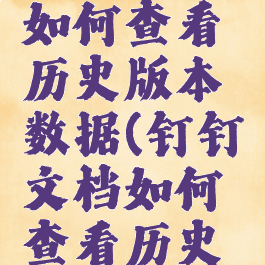 如何查看
历史版本
数据(钉钉
文档如何
查看历史